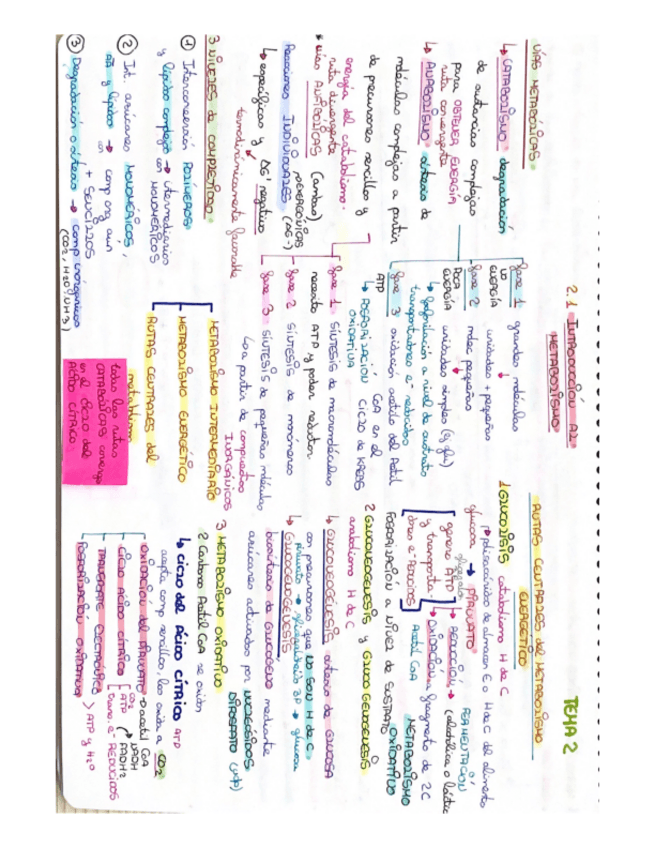 TEMA 2
2.1 INTRODUCCIÓN AL
METABOLISMO
VÍAS METABÓLICAS
↳ CATABOLISMO: degradación
de sustancias complejas
para OBTENER ENERGÍA
ruta convergente
↳ ANABOLISMO: síntesis de
moléculas complejas a partir
de precursores sencillos y
energía del catabolismo.
ruta divergente
• vías ANFIBÓLICAS (ambas)
Reacciones INDIVIDUALES
→ EXERGÓNICAS (ΔG-)
↳ específicas y ΔG' negativo
termodinámicamente favorable
fase 1: grandes moléculas
NO ENERGÍA
unidades + pequeñas
fase 2 molec pequeñas
POCA ENERGÍA
unidades simples
→ fosforilación a nivel de sustrato
transportadores e- reducidos
fase 3 oxidación acetilo del Acetil
ATP
CoA en el
CICLO DE KREBS
↳ FOSFORILACIÓN
OXIDATIVA
necesita ATP y poder reductor
fase 1: SÍNTESIS de macromoléculas
fase 2 SÍNTESIS de monómeros
fase 3 SÍNTESIS de pequeñas moléculas
↳ a partir de compuestos
INORGÁNICOS
3 NIVELES de COMPLEJIDAD
① Interconversión POLÍMEROS
y lípidos complejos → intermediarios
MONOMÉRICOS
② Int. azúcares MONOMÉRICOS,
aa y lípidos → comp org aún
+ SENCILLOS
③ Degradación o síntesis → comp inorgánicos
(CO2, H2O, NH3)
METABOLISMO INTERMEDIARIO
METABOLISMO ENERGÉTICO
RUTAS CENTRALES del
metabolismo
todas las rutas
CATABÓLICAS
en el ciclo del
ÁCIDO CÍTRICO
RUTAS CENTRALES del METABOLISMO
ENERGÉTICO
1 GLUCÓLISIS catabolismo H de C
polisacáridos de almacén E o H de C del alimento
glucosa → PIRUVATO
genera ATP
y transporta
dores e- REDUCIDOS
→ REDUCCIÓN → FERMENTACIÓN
(alcohólica o láctica)
→ OXIDACIÓN a fragmento de 2C
Acetil CoA METABOLISMO
OXIDATIVO
FOSFORILACIÓN a NIVEL de SUSTRATO
2 GLUCONEOGÉNESIS y GLUCOGENOGÉNESIS
anabolismo H de C
↳ GLUCONEOGÉNESIS síntesis de GLUCOSA
con precursores que NO SON H de C
piruvato → gliceraldehído 3P → glucosa
↳ GLUCOGENOGÉNESIS
biosíntesis de GLUCÓGENO mediante
azúcares activados por NUCLEÓSIDOS
DIFOSFATO (UDP)
3 METABOLISMO OXIDATIVO
2 Carbonos Acetil CoA se oxidan
↳ ciclo del Ácido CÍTRICO ATP
acepta comp sencillos, los oxida a CO2
OXIDACIÓN del PIRUVATO → acetil CoA
CICLO ÁCIDO CÍTRICO
CO2
ATP
NADH
FADH2
Trans. e- REDUCIDOS
TRANSPORTE ELECTRÓNICO
FOSFORILACIÓN OXIDATIVA
> ATP y H2O